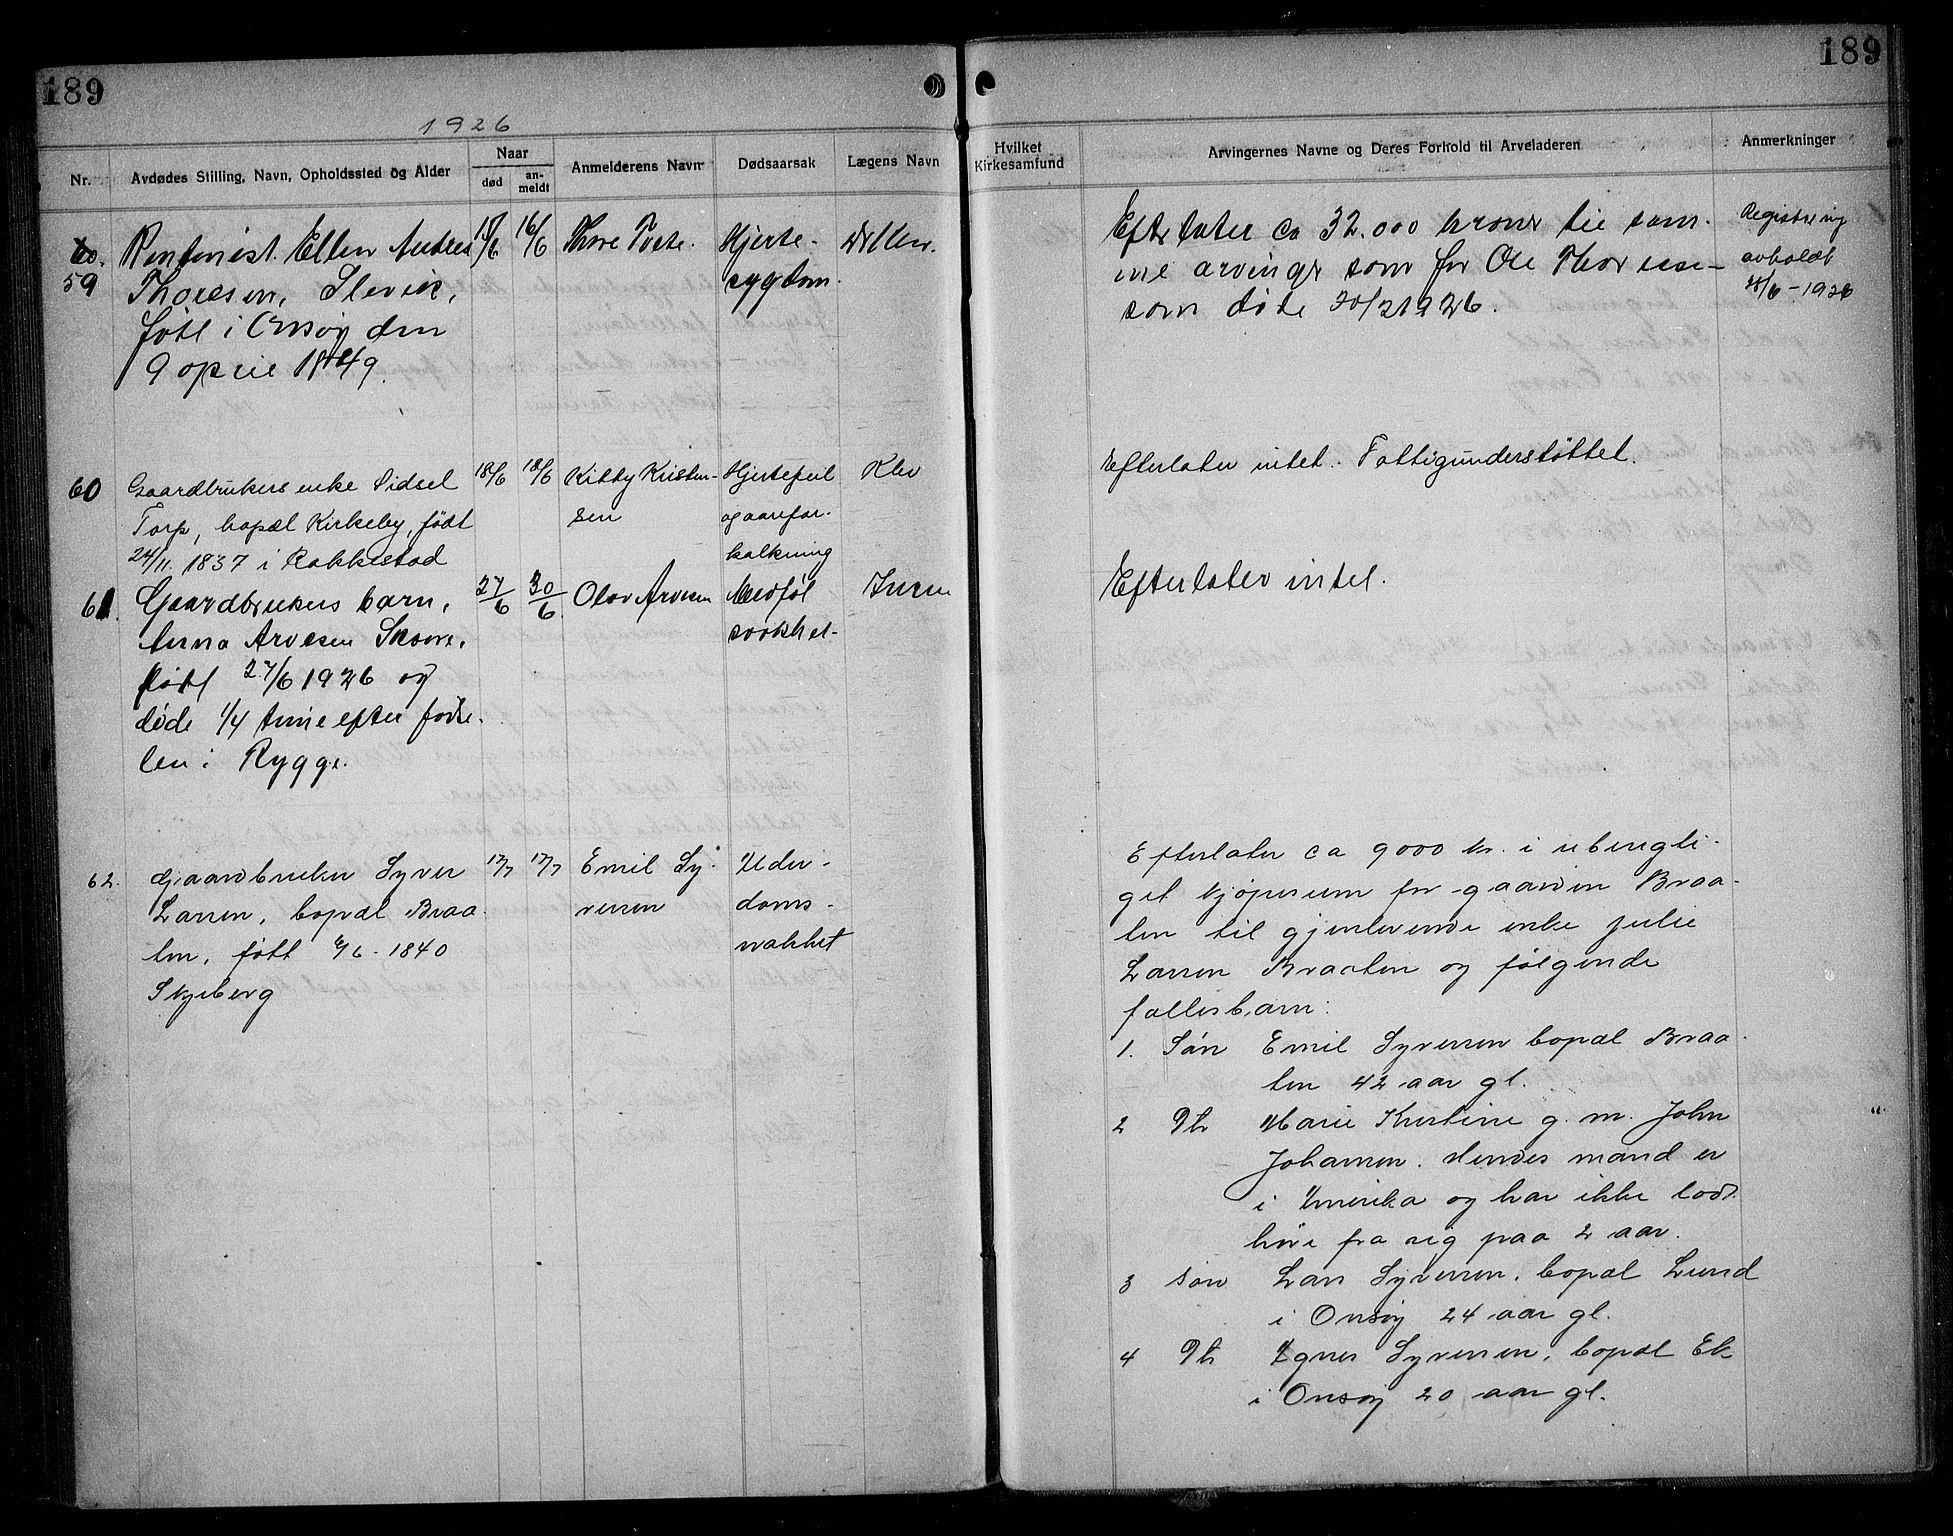 189
189
1926
Nr.
Avdødes Stilling, Navn, Opholdssted og Alder
Naar
død
an-
meldt
Anmelderens Navn
Dødsaarsak
Lægens Navn
Hvilket
Kirkesamfund
Arvingernes Navne og Deres Forhold til Arveladeren
Anmerkninger
59
Rentenist. Ellen Andrea
Thoresen, Slevik,
født i Onsøy den
9 april 1849.
16/6
Hjerte-
sygdom.
Efterlater ca 32.000 kroner til sam-
me arvinger som for Ole Thoresen
som døde 20/2 1926.
Registrering
avholdt
28/6-1926
60
Gaardbrukers enke Sidsel
Torp, bopæl Kirkeby, født
24/11. 1837 i Rakkestad
18/6
18/6
Kitty Kristen-
sen
Hjertefeil
og aarefor-
kalkning
Klev
Efterlater intet. Fattigunderstøttet.
61.
Gaardbrukers barn,
Anna Arvesen Skovn,
født 27/6 1926 og
døde 1/4 time efter fødse-
len i Rygge.
27/6
30/6
Olav Arvesen
Medføt
svakhet-
Efterlater intet.
62.
Gaardbruker Syver
Larsen, bopæl Braa-
ten, født 6/6-1840
Skjeberg
17/7
17/7
Emil Sy-
versen
Alder-
doms-
svakhet
Efterlater ca 9000 kr. i ubengli-
get kjøpesum for gaarden Braa-
ten til gjenlevende enke Julie
Larsen Braaten og følgende
fællesbarn:
1. Søn Emil Syversen bopæl Braa-
ten 42 aar gl.
2 Dtr Marie Kristine g. m. John
Johansen. Hendes mand er
i Amerika og har ikke latt
høre fra sig paa 2 aar.
3 Søn Lars Syversen, bopæl Lund
i Onsøy 24 aar gl.
4 Dtr Agnes Syversen, bopæl Ek
i Onsøy 20 aar gl.